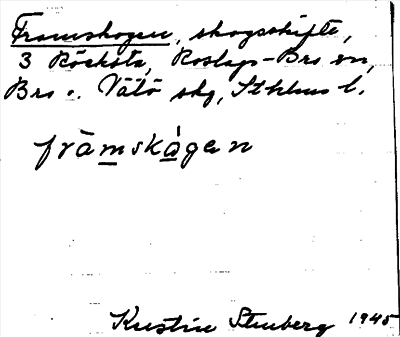 Framskogen, skogsskifte,
3 Rösksta, Roslags-Bro sn,
Bro o. Vätö skg, Sthlms l.
fràmskágen
Kerstin Stenberg 1945